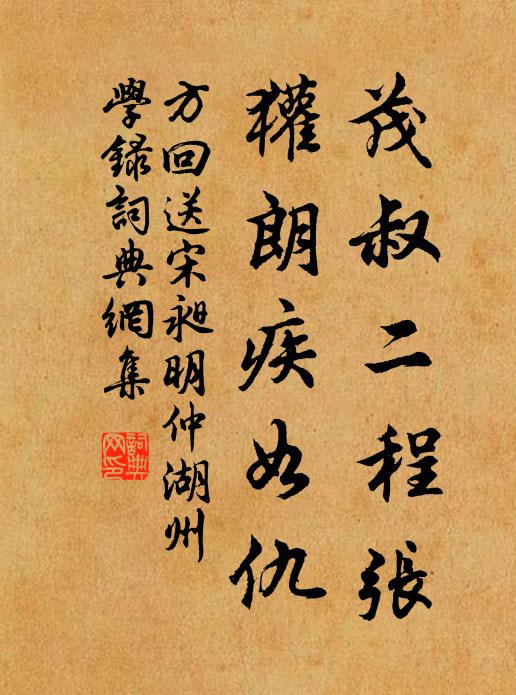 茂叔二程張
獾朗疾如仇
方回送宋昶明仲湖州
學錄詞典網集
詞典
网印